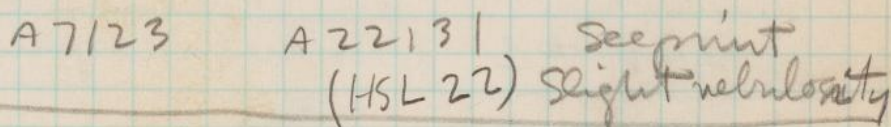 A7123 A22131 See print
(HSL 22) Slight nebulosity